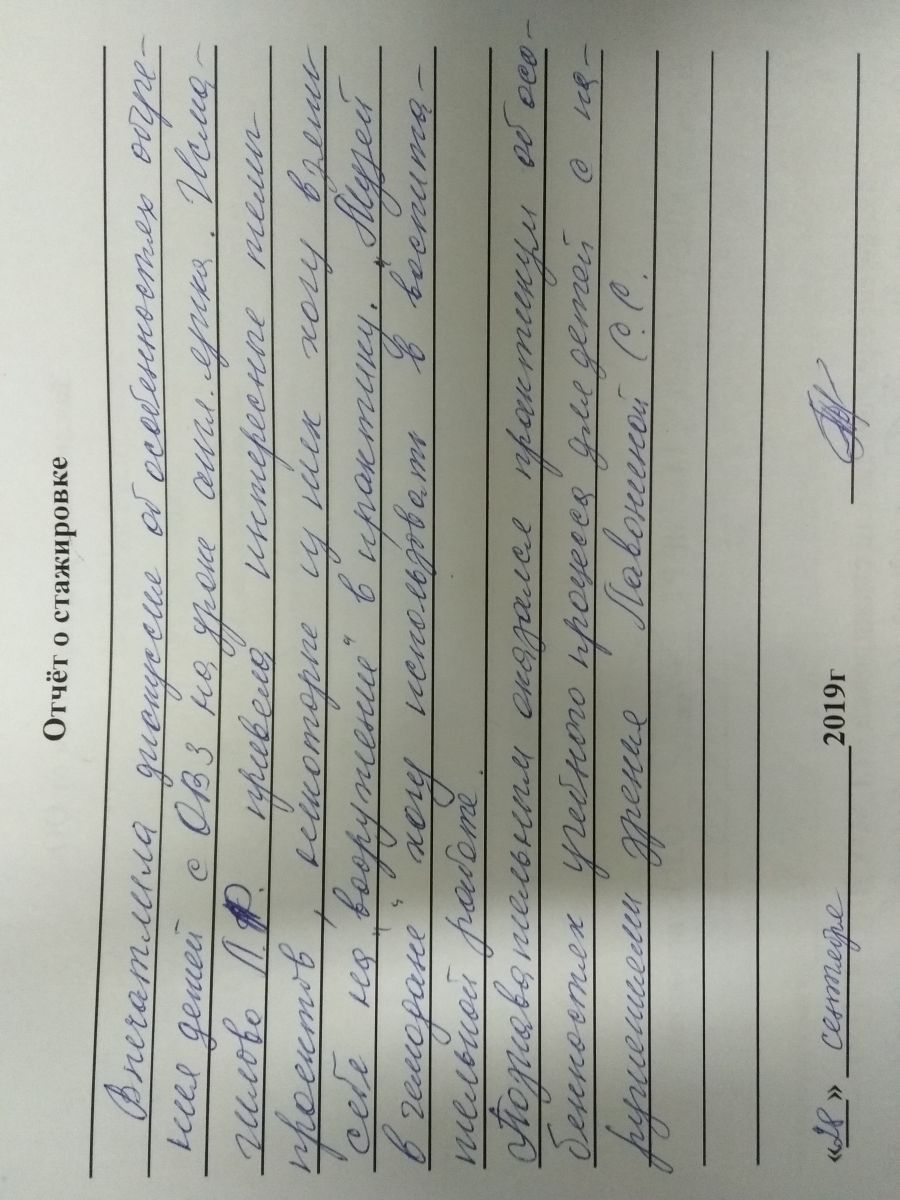 Отчёт о стажировке
Впечатлила дискуссия об особенностях обуче-
ния детей с ОВЗ на уроке англ. языка. Исма-
гилова Л.Р. привела интересные темы
проектов, некоторые из них хочу взять
себе на "вооружение" в практику. "Музей
в чемодане" хочу использовать в воспита-
тельной работе.
Познавательным оказался практикум об осо-
бенностях учебного процесса для детей с на-
рушением зрения С.С.
«28» сентября 2019г